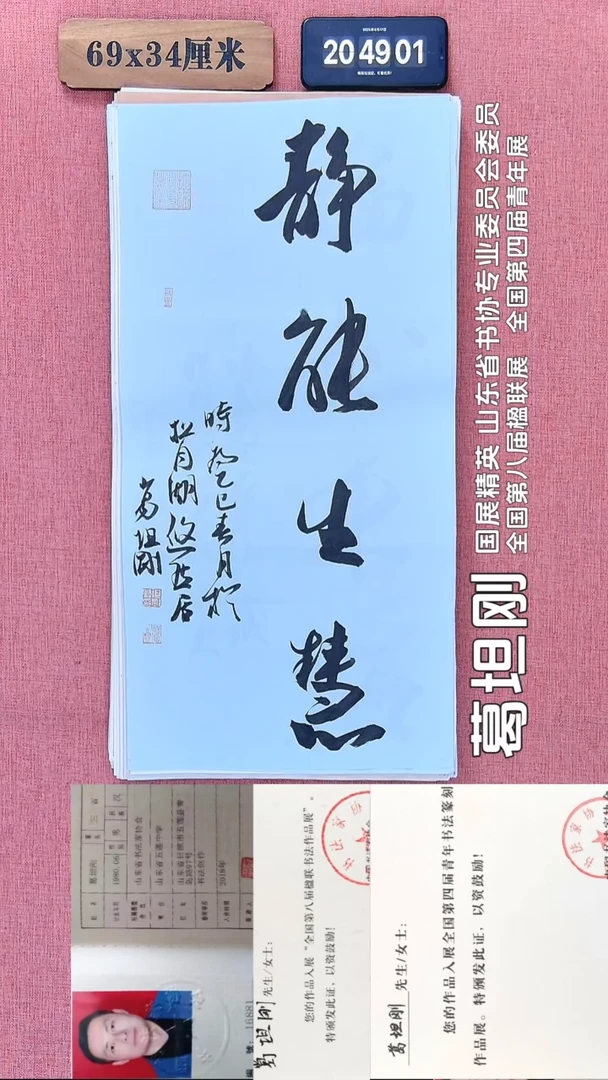 69x34厘米
20 49 01
静能生慧
时在乙巳春月于
松月湖悠然居
葛坦刚
葛坦刚
国展精英 山东省书协专业委员会委员
全国第八届楹联展 全国第四届青年展
葛坦刚
1980.06
山东省书法家协会
山东省五莲中学
书法创作
2018年
16881
葛坦刚 先生/女士：
您的作品入展“全国第八届楹联书法作品展”。
特颁发此证，以资鼓励！
葛坦刚 先生/女士：
您的作品入展全国第四届青年书法篆刻
作品展。特颁发此证，以资鼓励！